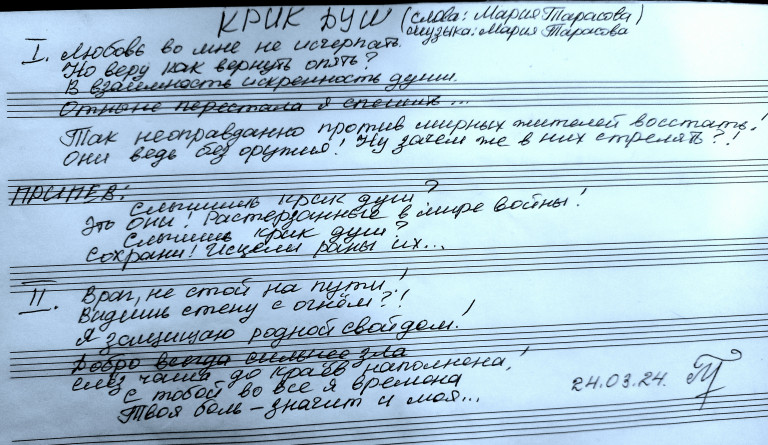 КРИК ДУШ (слова: Мария Тарасова)
(музыка: Мария Тарасова
I. Любовь во мне не исчерпать.
Но веру как вернуть опять?
В взаимность искренность души.
Отныне перестала я спешить...
Так неоправданно против мирных жителей восстать!
Они ведь без оружия! Ну зачем же в них стрелять?!
ПРИПЕВ:
Слышишь крик душ?
Это они! Растерзанные в мире войны!
Слышишь крик душ?
Сохрани! Исцели раны их...
II. Враг, не стой на пути!
Видишь стену с огнём?!
Я защищаю родной свой дом!
Добро всегда сильнее зла
Слёз чаша до краёв наполнена!
С тобой во все я времена
Твоя боль - значит и моя...
24.03.24.